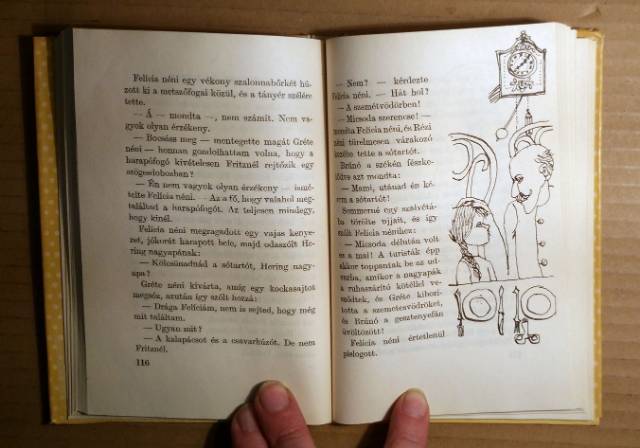 Felícia néni egy vékony szalonnabőrkét hú-
zott ki a metszőfogai közül, és a tányér szélére
tette.
— Á — mondta —, nem számít. Nem va-
gyok olyan érzékeny.
— Bocsáss meg — mentegette magát Gréte
néni — honnan gondolhattam volna, hogy a
harapófogó kivételesen Fritznél rejtőzik egy
szögesdobozban?
— Én nem vagyok olyan érzékeny — ismé-
telte Felícia néni. — Az a fő, hogy valahol meg-
találtad a harapófogót. Az teljesen mindegy,
hogy kinél.
Felícia néni megragadott egy vajas kenye-
ret, jókorát harapott bele, majd odaszólt He-
ring nagyapának:
— Kölcsönadnád a sótartót, Hering nagy-
apa?
Gréte néni kivárta, amíg egy kockasajtot
megsóz, azután így szólt hozzá:
— Drága Felíciám, nem is sejted, hogy még
mit találtam.
— Ugyan mit?
— A kalapácsot és a csavarhúzót. De nem
Fritznél.
116
— Nem? — kérdezte
Felícia néni. — Hát hol?
— A szemétvödörben!
— Micsoda szerencse! —
mondta Felícia néni, és Rézi
néni türelmesen várakozó
kezébe tette a sótartót.
Brúnó a székén fészke-
lődve azt mondta:
— Mami, utánad és ké-
rem a sótartót!
Sommerné egy szalvétá-
ba törölte ujjait, és így
szólt Felícia nénihez:
— Micsoda délután volt
ez a mai! A turisták épp
akkor toppantak be az ud-
varba, amikor a nagyapák
a ruhaszárító kötéllel ve-
sződtek, és Gréte kibori-
totta a szemetesvödröket,
és Brúnó a gesztenyefán
üvöltözött!
Felícia néni értetlenül
pislogott.